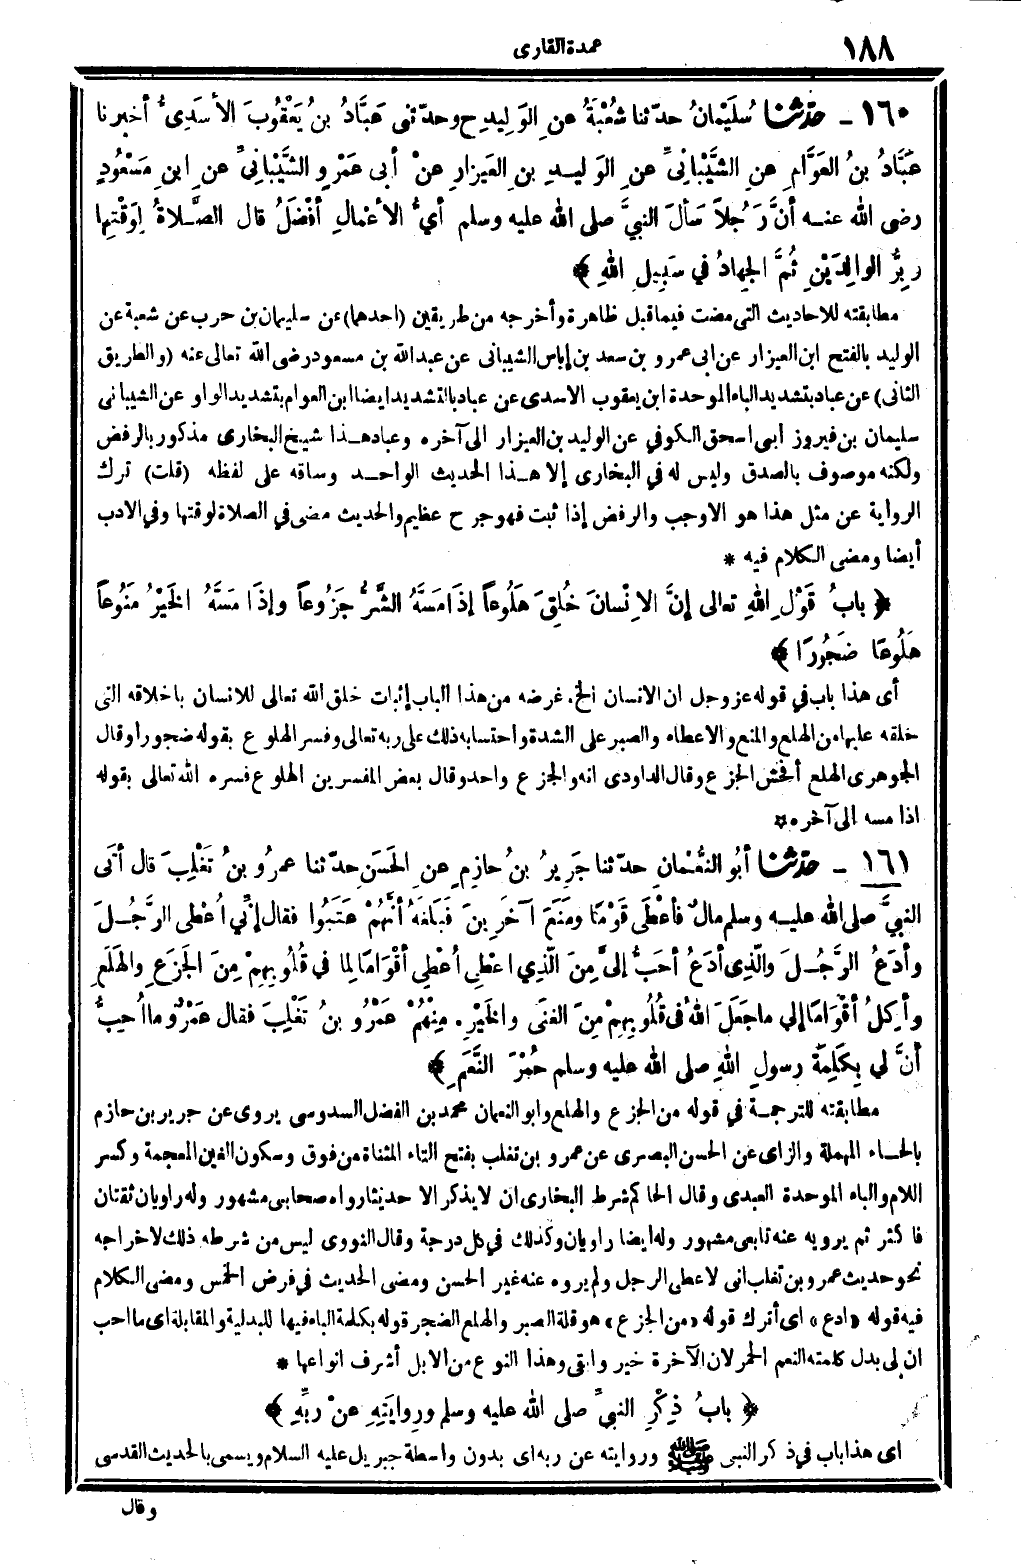 ١٨٨
عمدة القارى
١٦٠ - حدّثنا سُلَيْمَانُ حدّثنا شُعْبَةُ عنِ الوَلِيدِ ح وحدّثنى عَبَّادُ بنُ يَعْقُوبَ الأسَدِىُّ أخبرنا
عَبَّادُ بنُ العَوَّامِ عنِ الشَّيْبانِىِّ عنِ الوَلِيدِ بنِ العَيزارِ عنْ أبى عَمْرٍو الشَّيْبانِىِّ عنِ ابنِ مَسْعُودٍ
رضى الله عنه أنَّ رَجُلاً سَألَ النبىَّ صلى الله عليه وسلم أىُّ الأعْمالِ أفْضَلُ قال الصَّلاةُ لِوَقْتِها
وبِرُّ الوالِدَيْنِ ثُمَّ الجِهادُ في سَبِيلِ اللهِ ﴾
مطابقته للاحاديث التى مضت فيما قبل ظاهرة وأخرجه من طريقين (احدهما) عن سليمان بن حرب عن شعبة عن
الوليد بالفتح ابن العيزار عن ابى عمرو بن سعد بن إياس الشيبانى عن عبدالله بن مسعود رضى الله تعالى عنه (والطريق
الثانى) عن عباد بتشديد الباء الموحدة ابن يعقوب الاسدى عن عباد بالتشديد ايضا ابن العوام بتشديد الواو عن الشيبانى
سليمان بن فيروز أبى اسحق الكوفي عن الوليد بن العيزار الى آخره وعباد هذا شيخ البخارى مذكور بالرفض
ولكنه موصوف بالصدق وليس له في البخارى إلا هذا الحديث الواحد وساقه على لفظه (قلت) ترك
الرواية عن مثل هذا هو الاوجب والرفض إذا ثبت فهو جرح عظيم والحديث مضى في الصلاة لوقتها وفي الادب
أيضا ومضى الكلام فيه *
﴿ بابُ قَوْلِ اللهِ تعالى إنَّ الاِنْسانَ خُلِقَ هَلُوعاً إذَا مَسَّهُ الشَّرُّ جَزُوعاً وإذَا مَسَّهُ الخَيْرُ مَنُوعاً
هَلُوعًا ضَجُورًا ﴾
أى هذا باب في قوله عز وجل ان الانسان الخ. غرضه من هذا الباب إثبات خلق الله تعالى للانسان باخلاقه التى
خلقه عليها من الهلع والمنع والاعطاء والصبر على الشدة واحتسابه ذلك على ربه تعالى وفسر الهلوع بقوله ضجورا وقال
الجوهرى الهلع أفحش الجزع وقال الداودى انه والجزع واحد وقال بعض المفسرين الهلوع فسره الله تعالى بقوله
اذا مسه الى آخره *
١٦١ - حدّثنا أبُو النُّعْمانِ حدّثنا جَرِيرُ بنُ حازِمٍ عنِ الحَسَنِ حدّثنا عمرُو بنُ تَغْلِبَ قال أتَى
النبىَّ صلى الله عليه وسلم مالٌ فأعْطَى قَوْمًا ومَنَعَ آخَرِينَ فَبَلَغَهُ أنَّهُمْ عَتَبُوا فقال إنِّي أُعْطِى الرَّجُلَ
وأدَعُ الرَّجُلَ والَّذِى أدَعُ أحَبُّ إلىَّ مِنَ الَّذِي اعْطِى أُعْطِى أقْوَامًا لِما في قُلُوبِهِمْ مِنَ الجَزَعِ والهَلَعِ
وأكِلُ أقْوَامًا إلى ما جَعَلَ اللهُ فى قُلُوبِهِمْ مِنَ الغِنَى والخَيْرِ. مِنْهُمْ عَمْرُو بنُ تَغْلِبَ فقال عَمْرٌو ما أُحِبُّ
أنَّ لي بِكَلِمَةِ رسولِ اللهِ صلى الله عليه وسلم حُمْرَ النَّعَمِ ﴾
مطابقته للترجمة في قوله من الجزع والهلع وابو النعمان محمد بن الفضل السدوسى يروى عن جرير بن حازم
بالحاء المهملة والزاى عن الحسن البصرى عن عمرو بن تغلب بفتح التاء المثناة من فوق وسكون الغين المعجمة وكسر
اللام والباء الموحدة العبدى وقال الحاكم شرط البخارى ان لا يذكر الا حديثا رواه صحابى مشهور وله راويان ثقتان
فاكثر ثم يرويه عنه تابعى مشهور وله أيضا راويان وكذلك في كل درجة وقال النووى ليس من شرطه ذلك لاخراجه
نحو حديث عمرو بن تغلب انى لاعطى الرجل ولم يروه عنه غير الحسن ومضى الحديث في فرض الخمس ومضى الكلام
فيه قوله «ادع» اى أترك قوله «من الجزع» هو قلة الصبر والهلع الضجر قوله بكلمة الباء فيها للبدلية والمقابلة اى ما احب
ان لى بدل كلمته النعم الحمر لان الآخرة خير وابقى وهذا النوع من الابل أشرف انواعها *
﴿ بابُ ذِكْرِ النبىِّ صلى الله عليه وسلم ورِوايَتِهِ عنْ ربِّهِ ﴾
اى هذا باب في ذكر النبى ﷺ وروايته عن ربه اى بدون واسطة جبريل عليه السلام ويسمى بالحديث القدسى
وقال